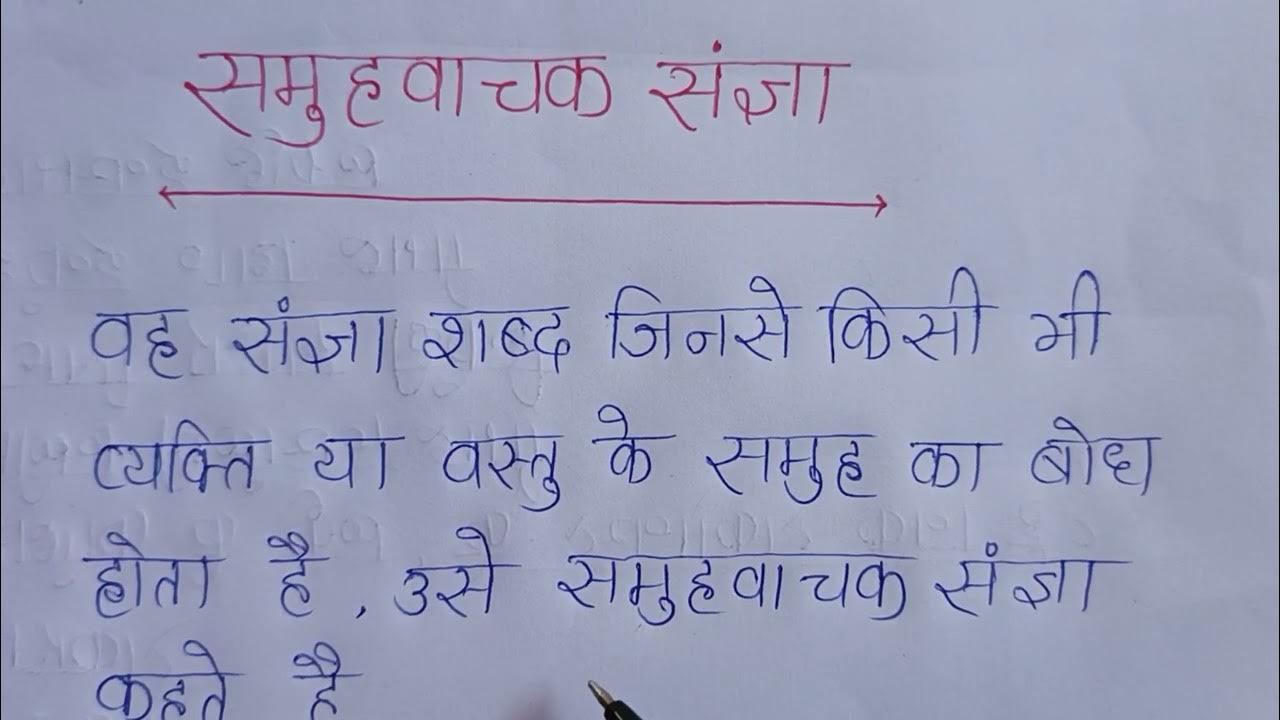 समुहवाचक संज्ञा
वह संज्ञा शब्द जिनसे किसी भी
व्यक्ति या वस्तु के समुह का बोध
होता है, उसे समुहवाचक संज्ञा
कहते है